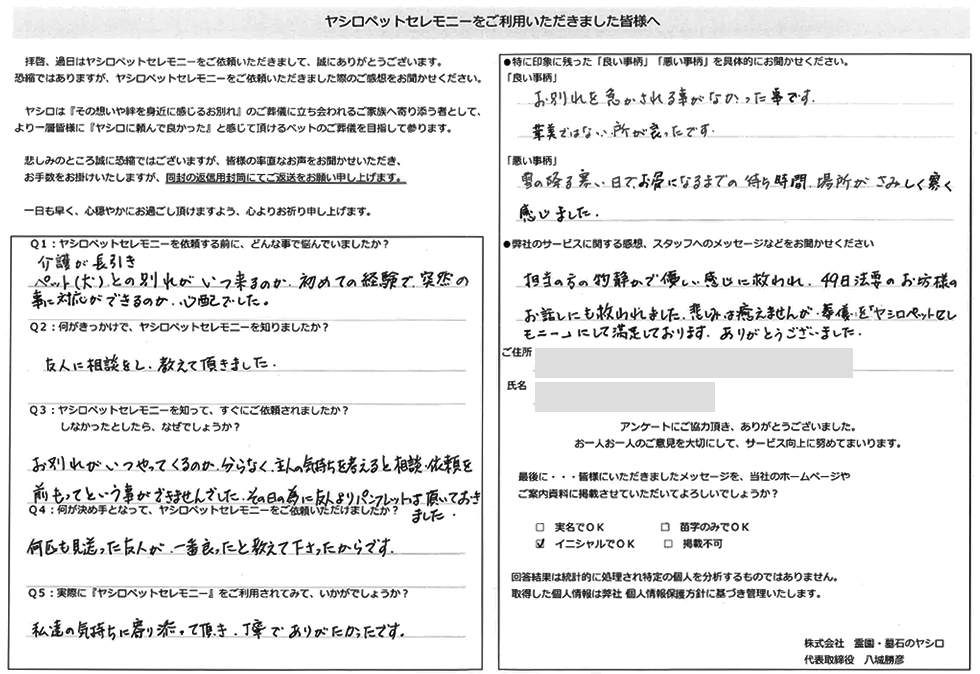 ヤシロペットセレモニーをご利用いただきました皆様へ
拝啓、過日はヤシロペットセレモニーをご依頼いただきまして、誠にありがとうございます。
恐縮ではありますが、ヤシロペットセレモニーをご依頼いただきました際のご感想をお聞かせください。
ヤシロは『その想いや絆を身近に感じるお別れ』のご葬儀に立ち会われるご家族へ寄り添う者として、
より一層皆様に『ヤシロに頼んで良かった』と感じて頂けるペットのご葬儀を目指して参ります。
悲しみのところ誠に恐縮ではございますが、皆様の率直なお声をお聞かせいただき、
お手数をお掛けいたしますが、同封の返信用封筒にてご返送をお願い申し上げます。
一日も早く、心穏やかにお過ごし頂けますよう、心よりお祈り申し上げます。
Q1:ヤシロペットセレモニーを依頼する前に、どんな事で悩んでいましたか?
介護が長引き
ペット(犬)との別れがいつ来るのか、初めての経験で、突然の
事に対応ができるのか、心配でした。
Q2:何がきっかけで、ヤシロペットセレモニーを知りましたか?
友人に相談をし、教えて頂きました。
Q3:ヤシロペットセレモニーを知って、すぐにご依頼されましたか?
しなかったとしたら、なぜでしょうか?
お別れがいつやってくるのか、分らなく、主人の気持ちを考えると相談・依頼を
前もってという事ができませんでした。その日の為に友人よりパンフレットは頂いておき
ました。
Q4:何が決め手となって、ヤシロペットセレモニーをご依頼いただけましたか?
何匹も見送った友人が、一番良ったと教えて下さったからです。
Q5:実際に『ヤシロペットセレモニー』をご利用されてみて、いかがでしょうか?
私達の気持ちに寄り添って頂き、丁寧でありがたかったです。
●特に印象に残った「良い事柄」「悪い事柄」を具体的にお聞かせください。
「良い事柄」
お別れを急かされる事がなかった事です。
華美ではない所が良ったです。
「悪い事柄」
雪の降る寒い日で、お骨になるまでの待ち時間、場所がさみしく寒く
感じました。
●弊社のサービスに関する感想、スタッフへのメッセージなどをお聞かせください
担当の方の物静かで優しい感じに救われ、49日法要のお坊様の
お話しにも救われました。悲しみは癒えませんが、葬儀を「ヤシロペットセレ
モニー」にして満足しております。ありがとうございました。
ご住所
氏名
アンケートにご協力頂き、ありがとうございました。
お一人お一人のご意見を大切にして、サービス向上に努めてまいります。
最後に・・・皆様にいただきましたメッセージを、当社のホームページや
ご案内資料に掲載させていただいてよろしいでしょうか?
□ 実名でOK □ 苗字のみでOK
☑ イニシャルでOK □ 掲載不可
回答結果は統計的に処理され特定の個人を分析するものではありません。
取得した個人情報は弊社 個人情報保護方針に基づき管理いたします。
株式会社 霊園・墓石のヤシロ
代表取締役 八城勝彦